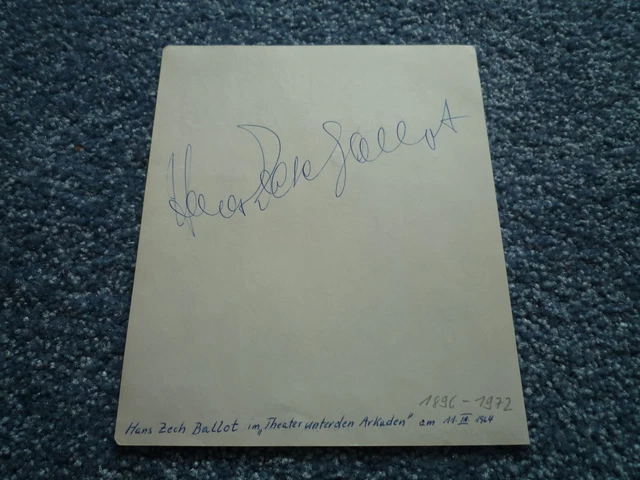 Hans Zech Ballot
1896 - 1972
Hans Zech Ballot im „Theater unter den Arkaden" am 11. III 1964